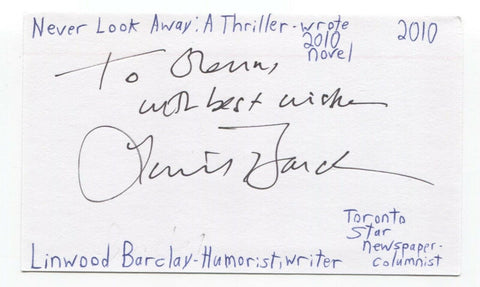 Never Look Away: A Thriller - wrote
2010
novel
2010
To Glenn,
with best wishes
Toronto
Star
newspaper-
columnist
Linwood Barclay-Humorist, writer